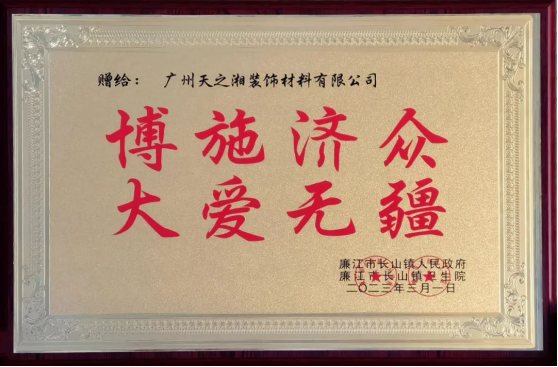 赠给： 广州天之湘装饰材料有限公司
博施济众
大爱无疆
廉江市长山镇人民政府
廉江市长山镇卫生院
二〇二三年三月一日